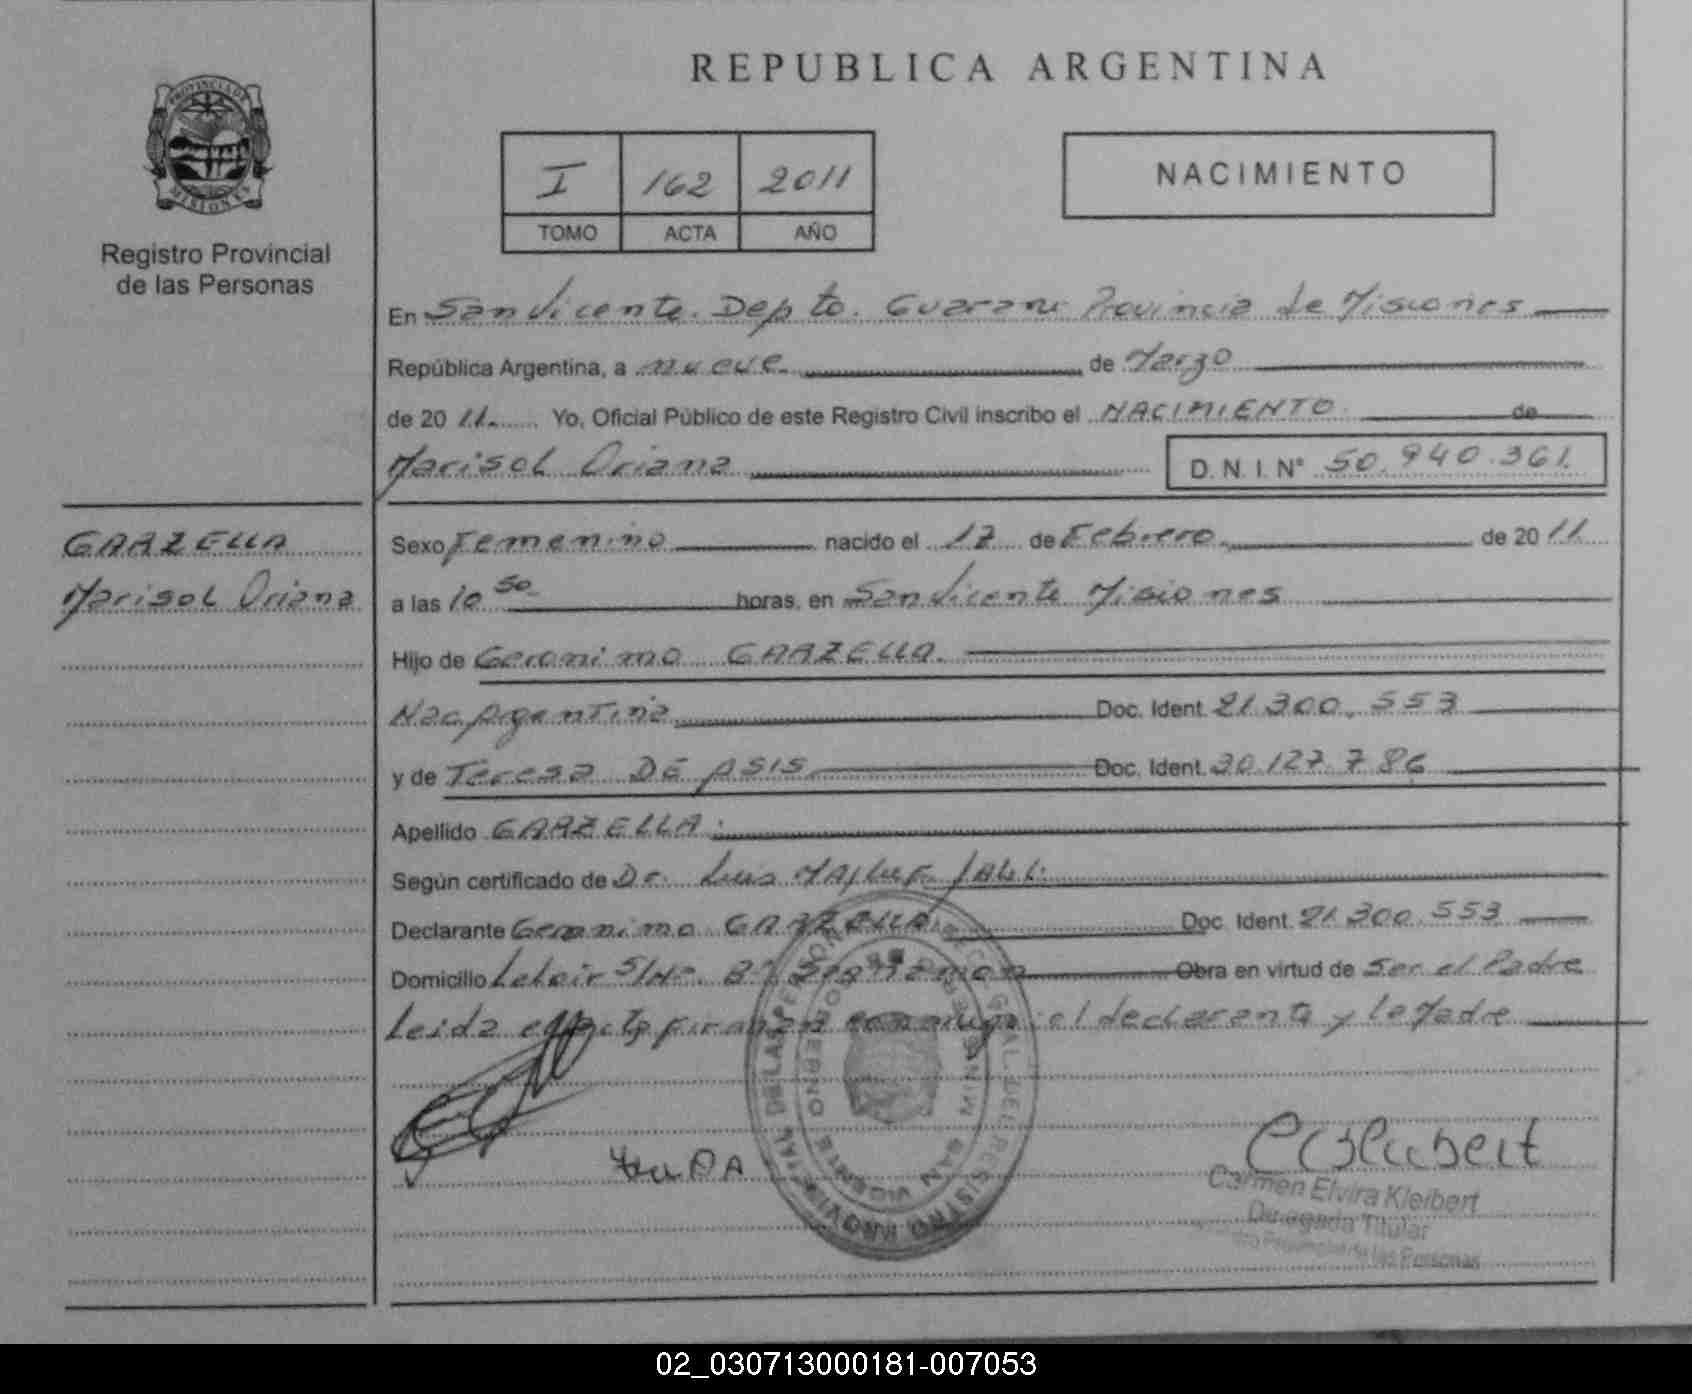 REPUBLICA ARGENTINA
PROVINCIA DE
MISIONES
Registro Provincial
de las Personas
I 162 2011
TOMO ACTA AÑO
NACIMIENTO
En San Vicente. Depto. Guarani Provincia de Misiones
República Argentina, a nueve de Marzo
de 2011. Yo, Oficial Público de este Registro Civil inscribo el NACIMIENTO de
Marisol Oriana D. N. I. N° 50.940.361.
GARZELLA
Marisol Oriana
Sexo Femenino nacido el 17 de Febrero de 2011
a las 10 50 horas, en San Vicente Misiones
Hijo de Geronimo GARZELLA.
Nac Argentina Doc. Ident. 21.300.553
y de Teresa DE ASIS Doc. Ident. 30.127.786
Apellido GARZELLA.
Según certificado de Dr. Luis
Declarante Geronimo GARZELLA Doc. Ident. 21.300.553
Domicilio Leloir S/Nº. Bº Obra en virtud de Ser el Padre
Leida el acta firman conmigo el declarante y la Madre
SAN VICENTE
Carmen Elvira Kleibert
Delegada Titular
Registro Provincial de las Personas
02_030713000181-007053